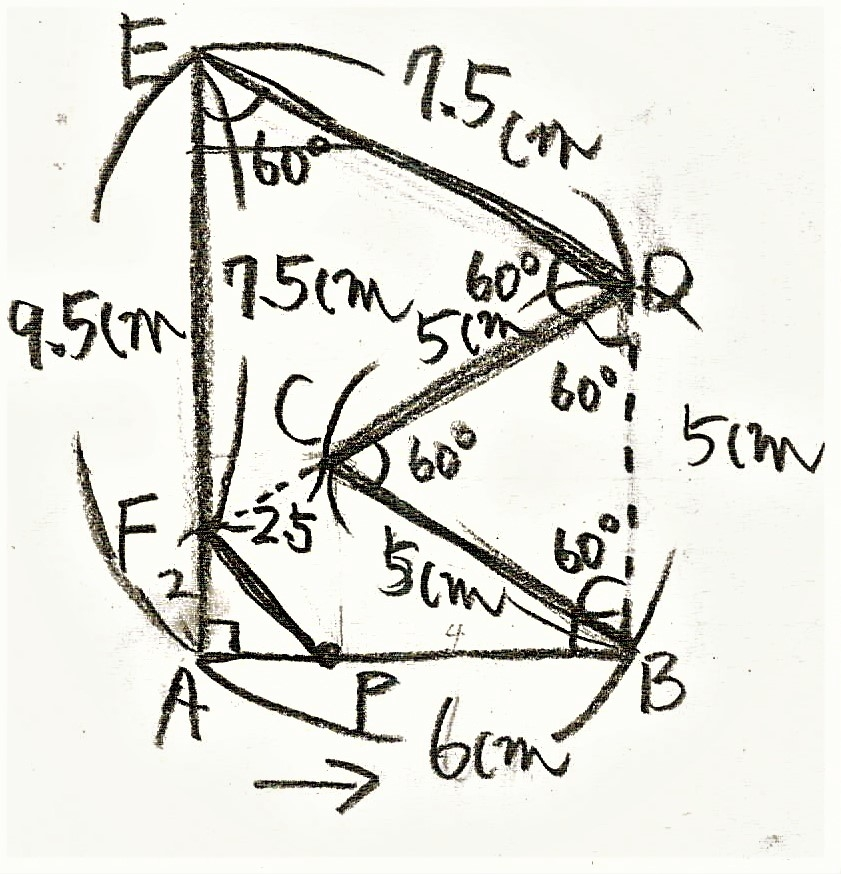 E
7.5cm
60°
60°
D
9.5cm
7.5cm
5cm
60°
C
60°
5cm
F
2.5
60°
2
5cm
4
A
P
B
6cm